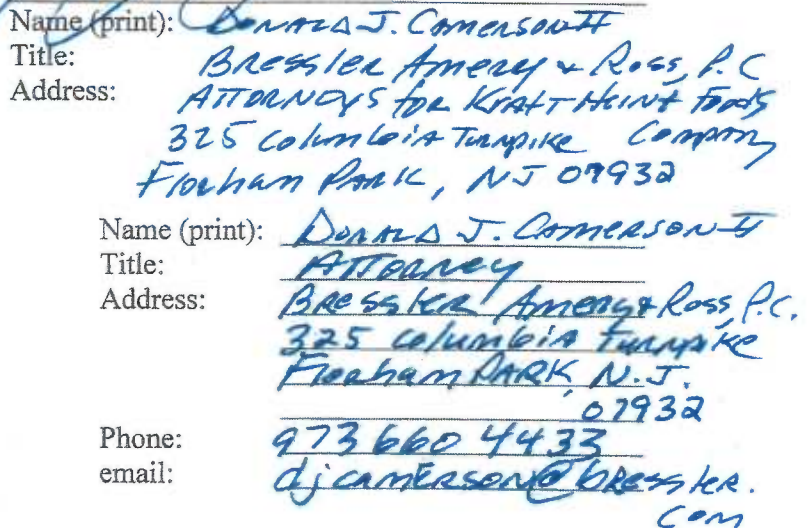 Name (print): Donald J. Camerson II
Title: Bressler Amery & Ross, P.C
Address: Attorneys for Kraft Heinz Foods
325 Columbia Turnpike Company
Florham Park, NJ 07932
Name (print): Donald J. Camerson II
Title: Attorney
Address: Bressler Amery & Ross, P.C.
325 Columbia Turnpike
Florham Park, N.J.
07932
Phone: 973 660 4433
email: djcamerson@bressler.
com